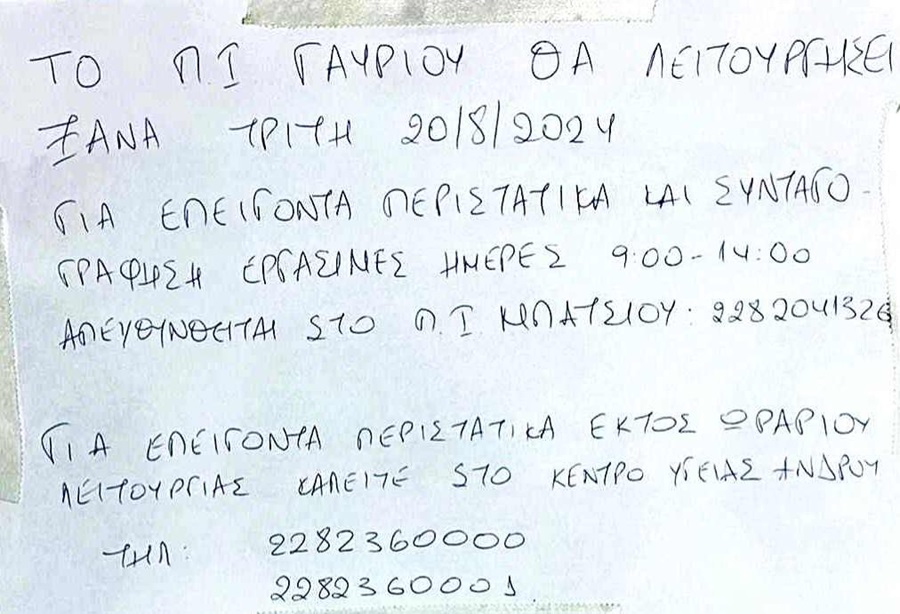 ΤΟ Π Ι ΓΑΥΡΙΟΥ ΘΑ ΛΕΙΤΟΥΡΓΗΣΕΙ
ΞΑΝΑ ΤΡΙΤΗ 20/8/2024
ΓΙΑ ΕΠΕΙΓΟΝΤΑ ΠΕΡΙΣΤΑΤΙΚΑ ΚΑΙ ΣΥΝΤΑΓΟ-
ΓΡΑΦΗΣΗ ΕΡΓΑΣΙΜΕΣ ΗΜΕΡΕΣ 9:00-14:00
ΑΠΕΥΘΥΝΘΕΙΤΑΙ ΣΤΟ Π.Ι ΜΠΑΤΣΙΟΥ: 2282041326
ΓΙΑ ΕΠΕΙΓΟΝΤΑ ΠΕΡΙΣΤΑΤΙΚΑ ΕΚΤΟΣ ΩΡΑΡΙΟΥ
ΛΕΙΤΟΥΡΓΙΑΣ ΚΑΛΕΙΤΕ ΣΤΟ ΚΕΝΤΡΟ ΥΓΕΙΑΣ ΑΝΔΡΟΥ
ΤΗΛ: 2282360000
2282360001